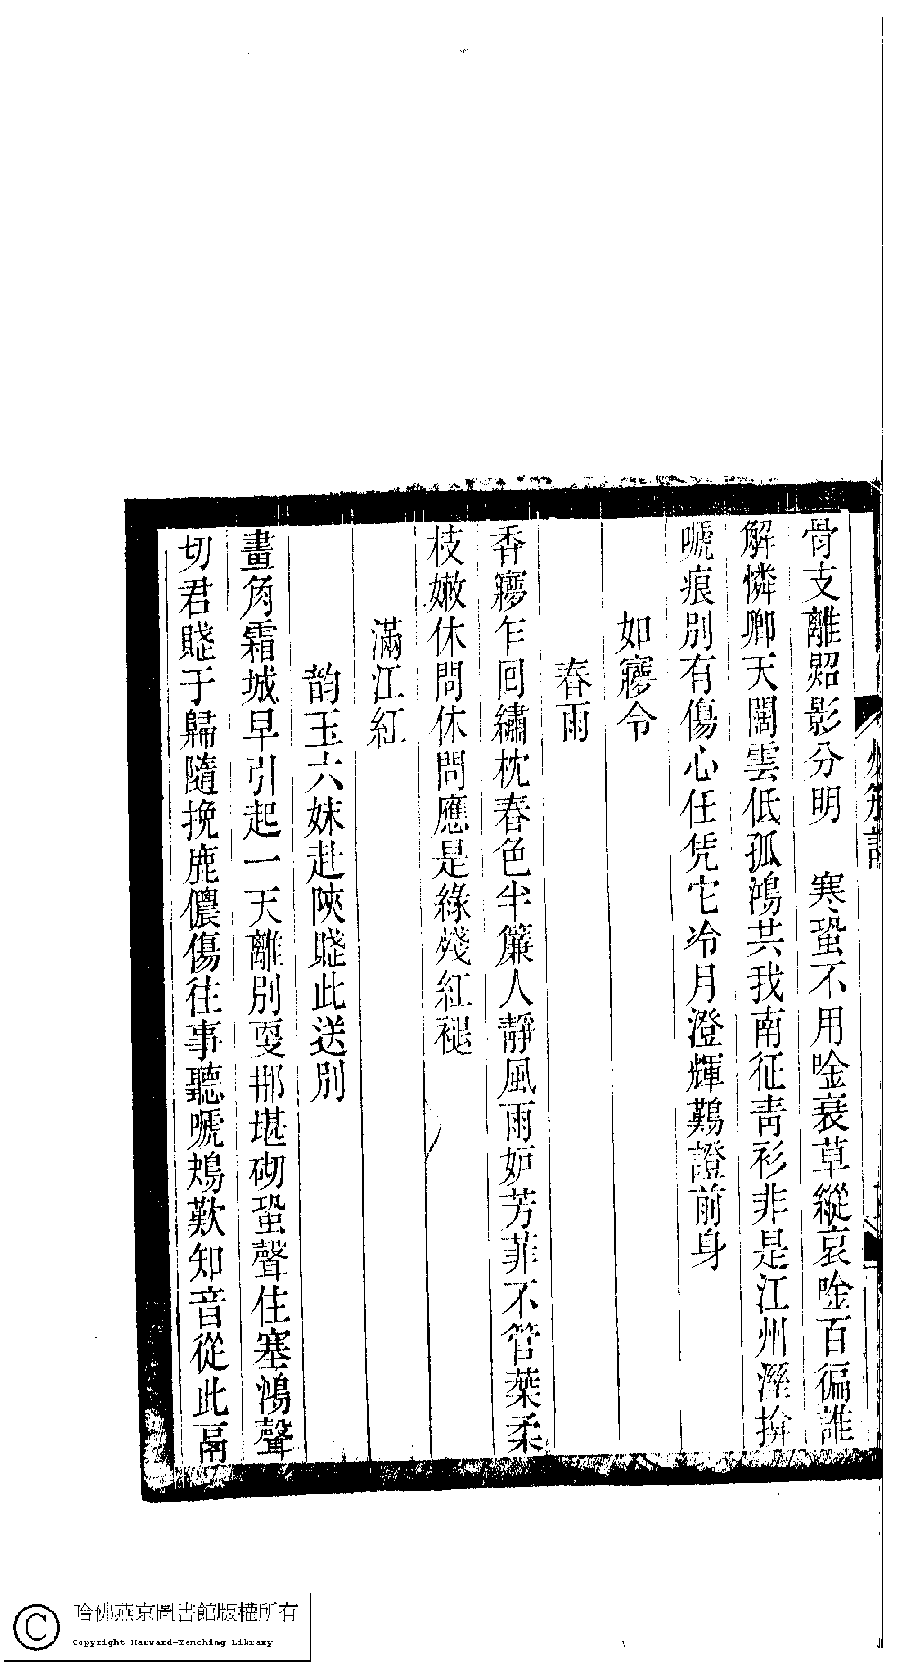 骨支離炤影分明　寒蛩不用唫衰草縱哀唫百徧誰
解憐卿天闊雲低孤鴻共我南征靑衫非是江州溼揜
嗁痕別有傷心任凭它冷月澄輝鷄證前身
如㝱令
春雨
香㝱乍回繡枕春色半簾人靜風雨妒芳菲不管葉柔
枝嫩休問休問應是綠殘紅褪
滿江紅
韵玉六妹赴陝賤此送別
畫角霜城早引起一天離別耍那堪砌蛩聲住塞鴻聲
切君賤于歸隨挽鹿儂傷往事聽嗁鴂歎知音從此鬲
哈佛燕京圖書館版權所有
Copyright Harvard-Yenching Library